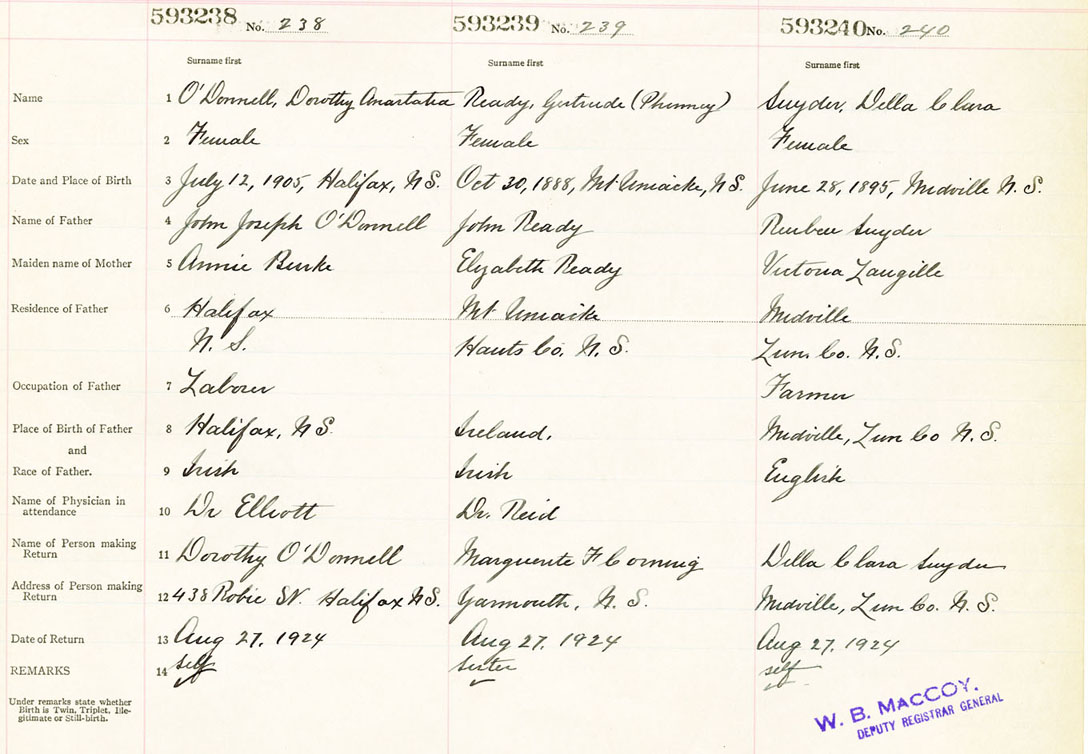 593238 No. 238 593239 No. 239 593240 No. 240
Surname first Surname first Surname first
Name 1 O'Donnell, Dorothy Anastatia Ready, Gertrude (Phinney) Snyder, Della Clara
Sex 2 Female Female Female
Date and Place of Birth 3 July 12, 1905, Halifax, N.S. Oct 30, 1888, Mt Uniacke, N.S. June 28, 1895, Midville N.S.
Name of Father 4 John Joseph O'Donnell John Ready Reuben Snyder
Maiden name of Mother 5 Annie Burke Elizabeth Ready Victoria Langille
Residence of Father 6 Halifax Mt Uniacke Midville
N. S. Hants Co, N. S. Lun Co. N.S.
Occupation of Father 7 Laborer Farmer
Place of Birth of Father 8 Halifax, N S. Ireland, Midville, Lun Co N. S.
and
Race of Father. 9 Irish Irish English
Name of Physician in
attendance 10 Dr Elliott Dr. Reid
Name of Person making
Return 11 Dorothy O'Donnell Marguerite F Corning Della Clara Snyder
Address of Person making
Return 12 438 Robie St. Halifax N.S. Yarmouth, N. S. Midville, Lun Co. N. S.
Date of Return 13 Aug 27, 1924 Aug 27, 1924 Aug 27, 1924
REMARKS 14 self sister self
Under remarks state whether
Birth is Twin, Triplet, Ille-
gitimate or Still-birth.
W. B. MACCOY.
DEPUTY REGISTRAR GENERAL